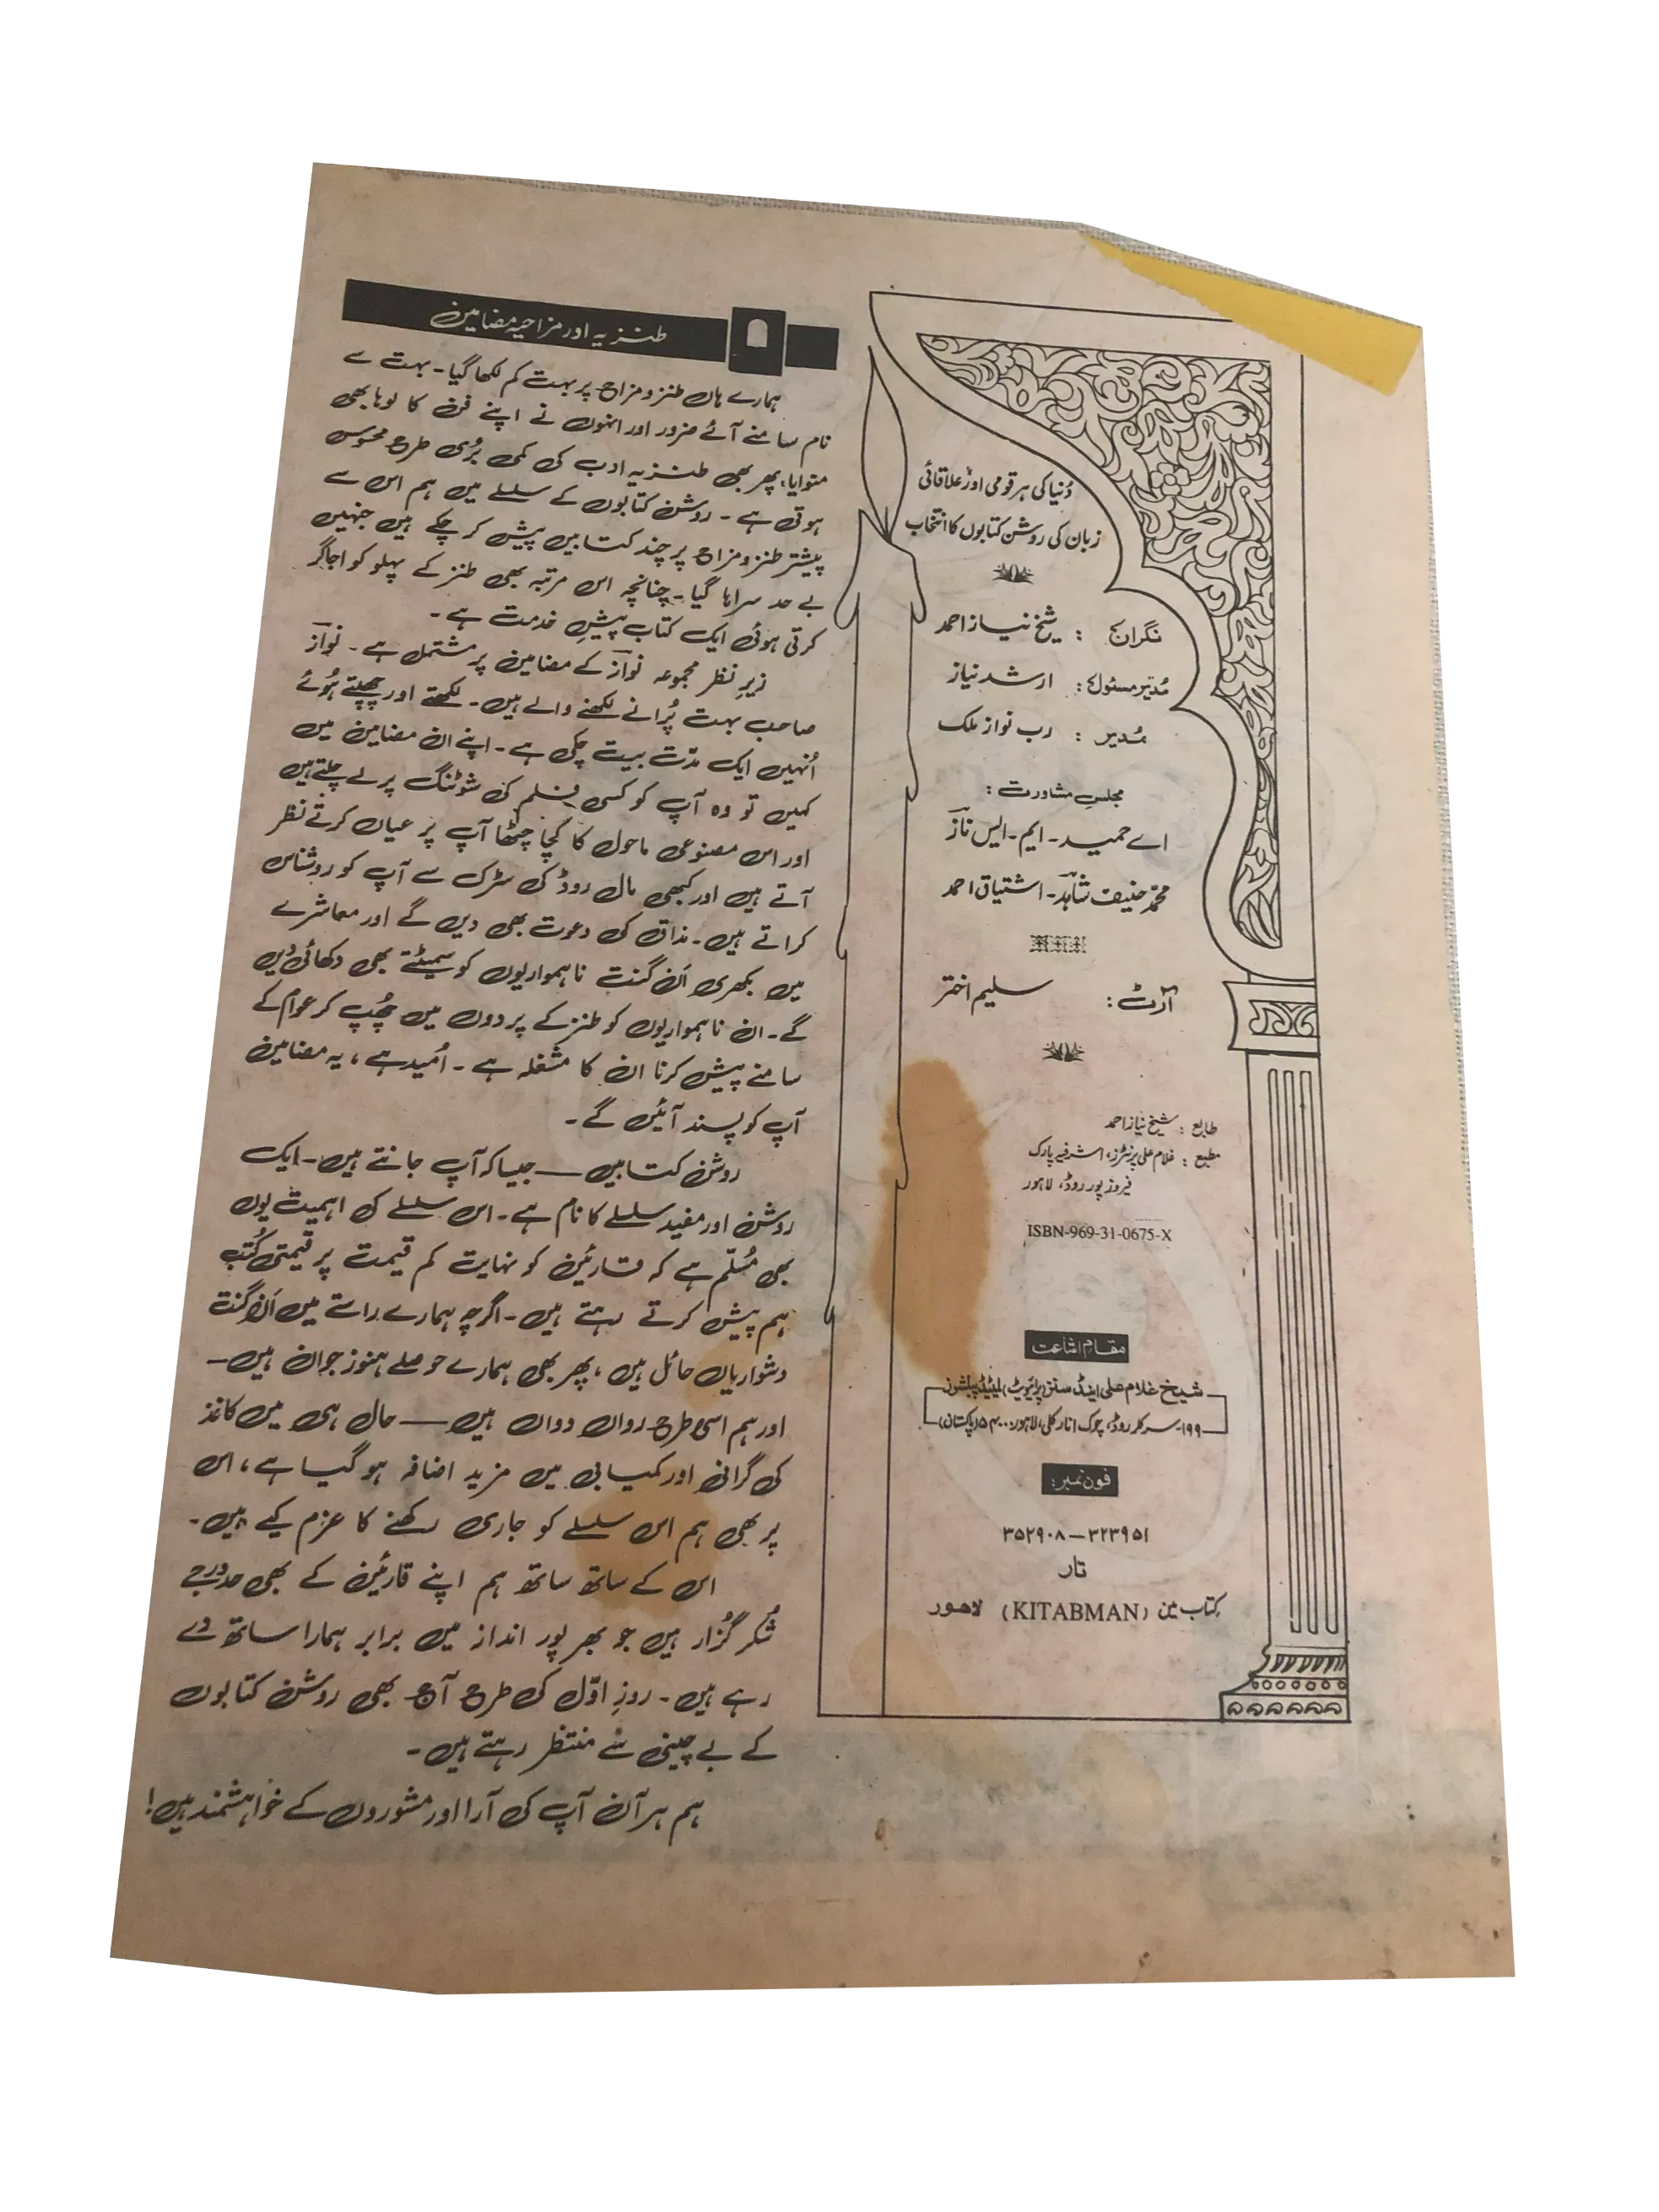 دُنیا کی ہر قومی اور علاقائی
زبان کی روشن کتابوں کا انتخاب
نگران : شیخ نیاز احمد
مُدیر مسئول : ارشد نیاز
مُدیر : رب نواز ملک
مجلسِ مشاورت :
اے حمید ۔ ایم ۔ ایس نازؔ
محمّد حنیف شاہدؔ ۔ اشتیاق احمد
آرٹ : سلیم اختر
طابع : شیخ نیاز احمد
مطبع : غلام علی پرنٹرز، اشرفیہ پارک
فیروز پور روڈ، لاہور
ISBN-969-31-0675-X
مقام اشاعت
شیخ غلام علی اینڈ سنز (پرائیویٹ) لمیٹڈ پبلشرز
۱۹۹۔ سرکلر روڈ، چوک انارکلی، لاہور: ۵۴۰۰۰ (پاکستان)
فون نمبر:
۳۵۲۹۰۸ — ۳۲۳۹۵۱
تار
کتاب مین (KITABMAN) لاہور
طنزیہ اور مزاحیہ مضامین
ہمارے ہاں طنز و مزاح پر بہت کم لکھا گیا ۔ بہت سے
نام سامنے آئے ضرور اور انہوں نے اپنے فن کا لوہا بھی
منوایا، پھر بھی طنزیہ ادب کی کمی بُری طرح محسوس
ہوتی ہے ۔ روشن کتابوں کے سلسلے میں ہم اس سے
پیشتر طنز و مزاح پر چند کتابیں پیش کر چکے ہیں جنہیں
بے حد سراہا گیا ۔ چنانچہ اس مرتبہ بھی طنز کے پہلو کو اجاگر
کرتی ہوئی ایک کتاب پیشِ خدمت ہے ۔
زیرِ نظر مجموعہ نوازؔ کے مضامین پر مشتمل ہے ۔ نوازؔ
صاحب بہت پُرانے لکھنے والے ہیں ۔ لکھتے اور چھپتے ہُوئے
اُنہیں ایک مدّت بیت چکی ہے ۔ اپنے ان مضامین میں
کہیں تو وہ آپ کو کسی فلم کی شوٹنگ پر لے چلتے ہیں
اور اس مصنوعی ماحول کا کچا چٹھا آپ پر عیاں کرتے نظر
آتے ہیں اور کبھی مال روڈ کی سڑک سے آپ کو روشناس
کراتے ہیں ۔ مذاق کی دعوت بھی دیں گے اور معاشرے
میں بکھری اَن گنت ناہمواریوں کو سمیٹتے بھی دکھائی دیں
گے ۔ ان ناہمواریوں کو طنز کے پردوں میں چُھپ کر عوام کے
سامنے پیش کرنا ان کا مشغلہ ہے ۔ اُمید ہے، یہ مضامین
آپ کو پسند آئیں گے ۔
روشن کتابیں — جیسا کہ آپ جانتے ہیں ۔ ایک
روشن اور مفید سلسلے کا نام ہے ۔ اس سلسلے کی اہمیت یوں
بھی مُسلّم ہے کہ قارئین کو نہایت کم قیمت پر قیمتی کُتب
ہم پیش کرتے رہتے ہیں ۔ اگرچہ ہمارے راستے میں اَن گنت
دشواریاں حائل ہیں، پھر بھی ہمارے حوصلے ہنوز جوان ہیں ۔
اور ہم اسی طرح رواں دواں ہیں — حال ہی میں کاغذ
کی گرانی اور کمیابی میں مزید اضافہ ہو گیا ہے، اس
پر بھی ہم اس سلسلے کو جاری رکھنے کا عزم کیے ہیں ۔
اس کے ساتھ ساتھ ہم اپنے قارئین کے بھی حد درجے
شُکر گزار ہیں جو بھرپور انداز میں برابر ہمارا ساتھ دے
رہے ہیں ۔ روزِ اوّل کی طرح آج بھی روشن کتابوں
کے بے چینی سے منتظر رہتے ہیں ۔
ہم ہر آن آپ کی آرا اور مشوروں کے خواہشمند ہیں !